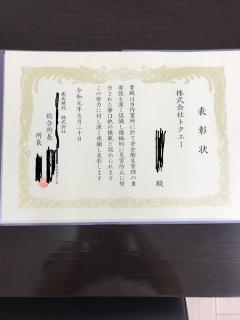 表彰状
株式会社トクエー
殿
貴殿は当作業所に於て安全衛生管理の重
要性を深く認識し積極的に災害防止に努
力された事は他の模範と認められます
この努力に対し深く感謝し表彰します
令和元年五月二十日
鹿島建設株式会社
総合所長
所長